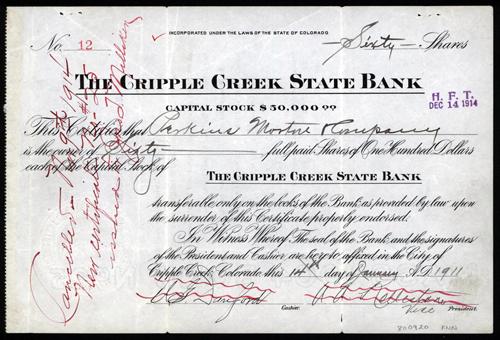 INCORPORATED UNDER THE LAWS OF THE STATE OF COLORADO.
No. 12 Sixty Shares
THE CRIPPLE CREEK STATE BANK
CAPITAL STOCK $50,000.00
H. F. T.
DEC 14 1914
This Certifies that Perkins Company
is the owner of Sixty full paid Shares of One Hundred Dollars
each of the Capital Stock of
THE CRIPPLE CREEK STATE BANK
transferable only on the books of the Bank as provided by law upon
the surrender of this Certificate properly endorsed.
In Witness Whereof The seal of the Bank and the signatures
of the President and Cashier, are hereto affixed in the City of
Cripple Creek, Colorado, this 14th day of January A.D. 1911
Cashier. President.
Vice
Cancelled 1914
New certificate
issued
800920 FNN